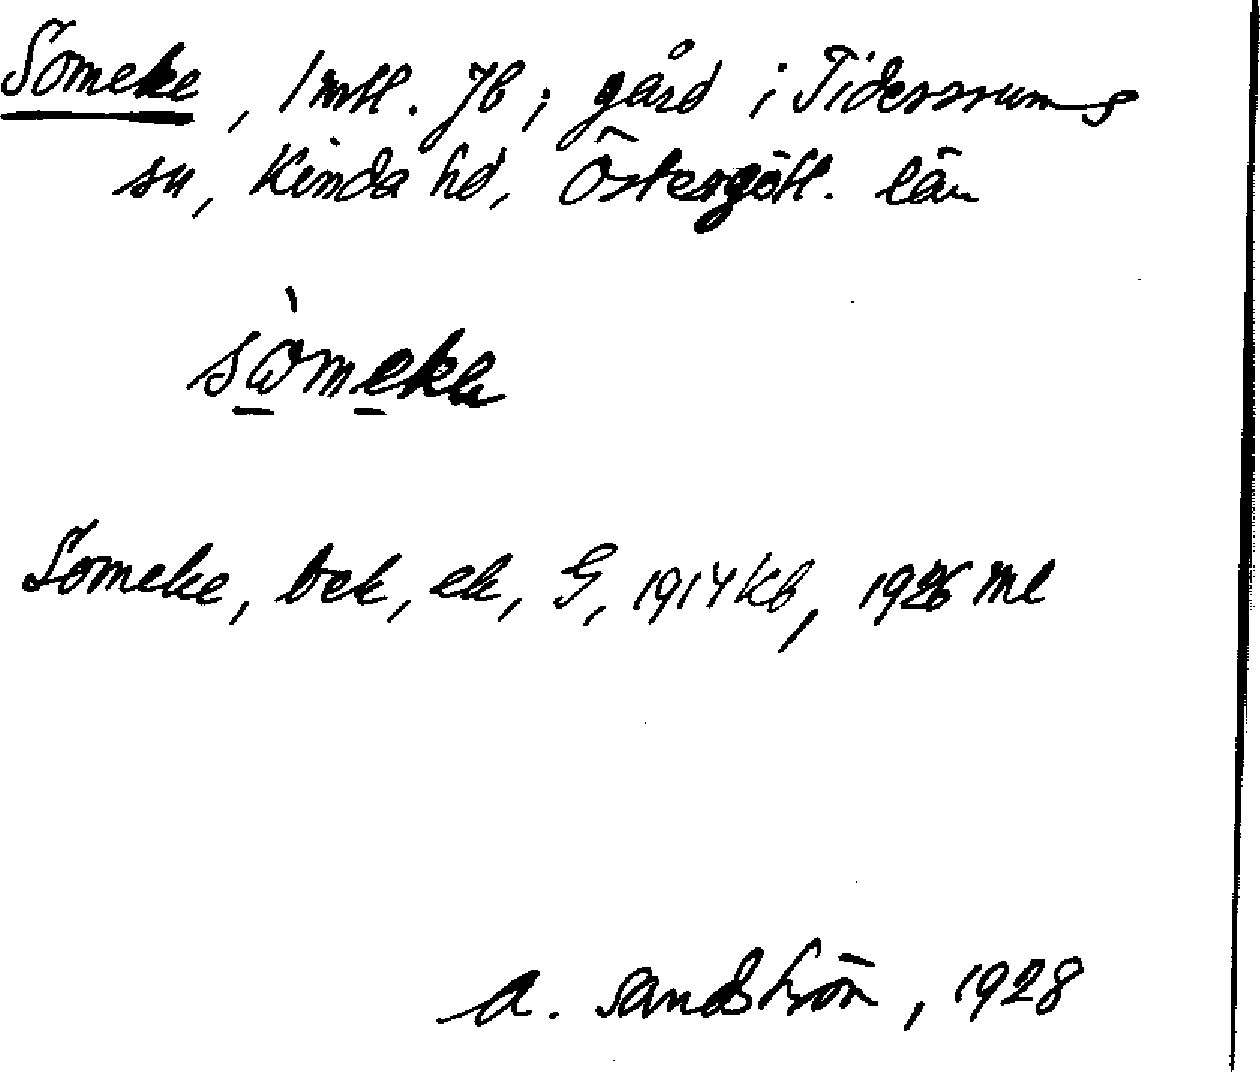 Someke, 1 mtl. Jb; gård i Tidersrums
sn, Kinda hd, Östergötl. län
Someke, bek, ek, G, 1914 Kb, 1926 ml
A. Sandström, 1928